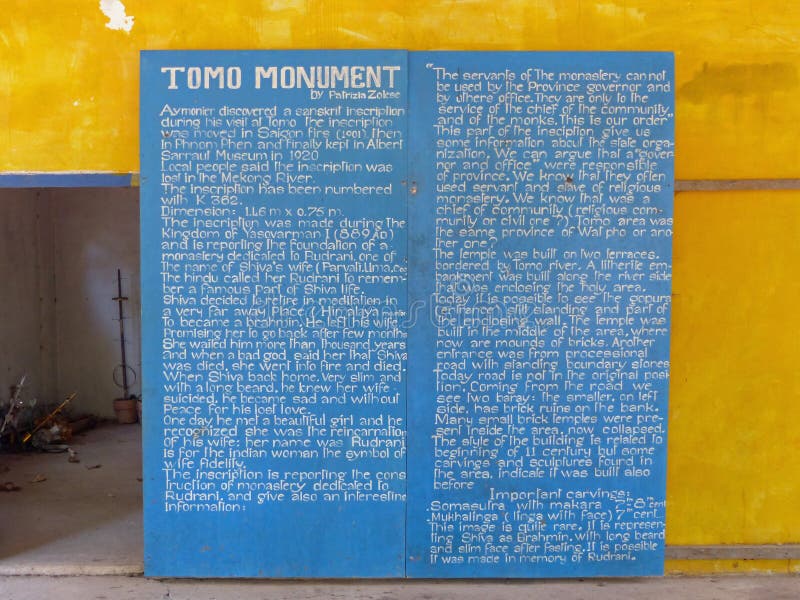 TOMO MONUMENT
by Patrizia Zolese
Aymonier discovered a sanskrit inscription
during his visit at Tomo The inscription
was moved in Saigon firs (1901) then
in Phnom Phen and finally kept in Albert
Sarraut Museum in 1920
Local people said the inscription was
lost in the Mekong River.
The inscription has been numbered
with K 362.
Dimension: 1.46 m x 0.75 m.
The inscription was made during the
Kingdom of Yasovarman I (889 AD)
and is reporting the foundation of a
monastery dedicated to Rudrani, one of
the name of Shiva's wife (Parvati, Uma,
The hindu called her Rudrani to remem-
ber a famous part of Shiva life.
Shiva decided to retire in meditation in
a very far away Place (Himalaya
To became a brahmin. He left his wife
Promising her to go back after few months
She waited him more than thousand years
and when a bad god said her that Shiva
was died, she went into fire and died.
When Shiva back home, Very slim and
with a long beard, he knew her wife
suicided, he became sad and without
Peace for his lost love.
One day he met a beautiful girl and he
recognized she was the reincarnation
of his wife: her name was Rudrani
is for the indian woman the symbol of
wife fidelity.
The inscription is reporting the cons
truction of monastery dedicated to
Rudrani, and give also an interesting
information:
"The servants of the monastery can not
be used by the Province governor and
by others office. They are only to the
service of the chief of the community
and of the monks. This is our order"
This part of the insciption give us
some information about the state orga-
nization. We can argue that a "gover-
nor and office" were responsible
of province. We know that they often
used servant and slave of religious
monastery. We know that was a
chief of community (religious com-
munity or civil one ?) Tomo area was
the same province of Wat pho or ano
ther one?
The temple was built on two terraces,
bordered by Tomo river. A litherite em-
bankment was built along the river side
that was enclosing the holy area.
Today it is possible to see the gopura
(entrance) still standing and part of
the enclosing wall. The temple was
built in the middle of the area, where
now are mounds of bricks. Another
entrance was from processional
road with standing boundary stones
Today road is not in the original posi-
tion. Coming from the road we
see two baray: the smaller, on left
side, has brick ruins on the bank.
Many small brick temples were pre-
sent inside the area, now collapsed.
The style of the building is related to
beginning of 11 century but some
carvings and sculptures found in
the area, indicate it was built also
before
Important carvings:
Somasutra with makara 7th-8th cent
Mukhalinga (linga with face) 7th cent.
This image is quite rare. It is represen-
ting Shiva as Brahmin, with long beard
and slim face after fasting. It is possible
it was made in memory of Rudrani.